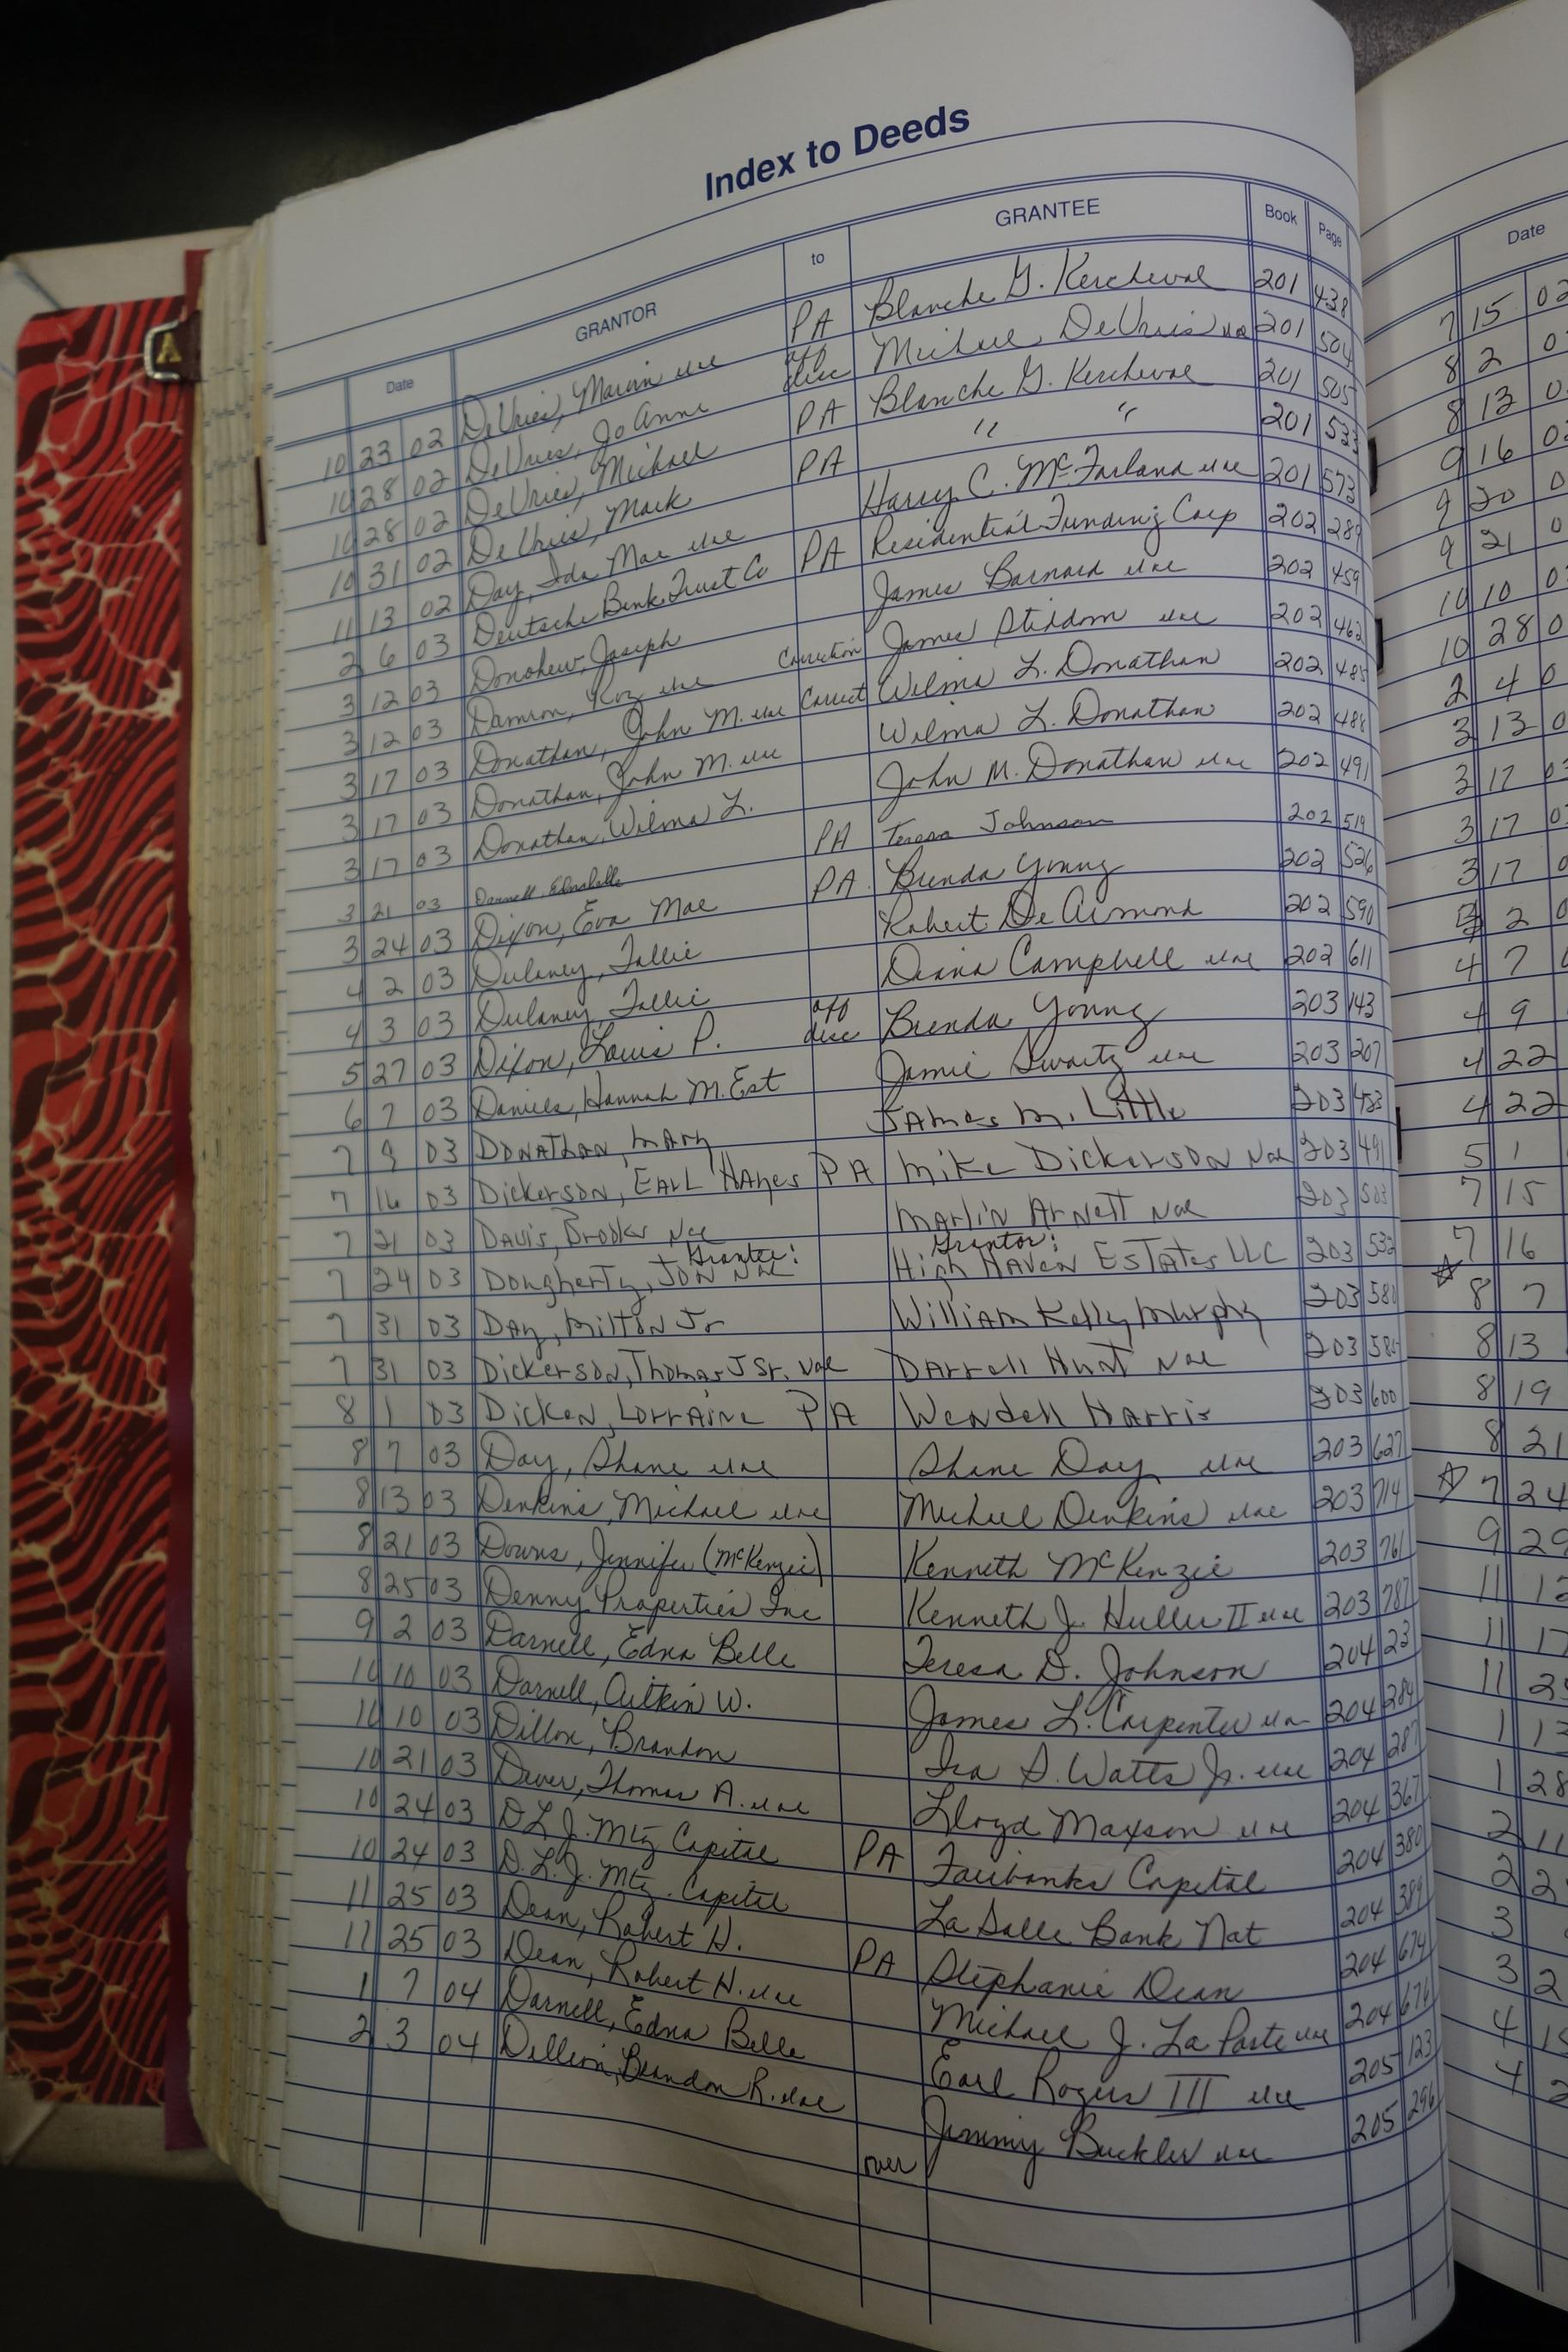 Index to Deeds
Date GRANTOR to GRANTEE Book Page
10 23 02 DeVries, Marvin uxe PA Blanche G. Kercheval 201 438
10 28 02 DeVries, Jo Anne aff desc Michael DeVries uxe 201 504
10 28 02 DeVries, Michael PA Blanche G. Kercheval 201 505
10 31 02 DeVries, Mark PA " " 201
11 13 02 Day, Ida Mae uxe Harry C. McFarland uxe 201 573
2 6 03 Deutsche Bank Trust Co PA Residential Funding Corp 202 289
3 12 03 Donohew, Joseph James Barnard uxe 202 459
3 12 03 Damron, Roy uxe Correction James Stiddom uxe 202 462
3 17 03 Donathan, John M. uxe Correct Wilma L. Donathan 202 485
3 17 03 Donathan, John M. uxe Wilma L. Donathan 202 488
3 17 03 Donathan, Wilma L. John M. Donathan uxe 202 491
3 21 03 Darnell, Ednabelle PA Teresa Johnson 202 519
3 24 03 Dixon, Eva Mae PA Brenda Young 202 526
4 2 03 Dulaney, Tallie Robert DeArmond 202 590
4 3 03 Dulaney, Tallie Diana Campbell uxe 202 611
5 27 03 Dixon, Louis P. aff desc Brenda Young 203 143
6 7 03 Daniels, Hannah M. Est Jamie Swartz uxe 203 207
7 9 03 Donathan, Mary James M. Little 203 483
7 16 03 Dickerson, Earl Hayes PA Mike Dickerson uxe 203 491
7 21 03 Davis, Brooks uxe Marlin Arnett uxe 203 503
Grantee: Grantor:
7 24 03 Dougherty, Jon uxe High Haven Estates LLC 203 532
7 31 03 Day, Milton Jr William Kelly Murphy 203 580
7 31 03 Dickerson, Thomas J Sr. uxe Darrell Hunt uxe 203
8 1 03 Dicken, Lorraine PA Wendell Harris 203 600
8 7 03 Day, Shane uxe Shane Day uxe 203 627
8 13 03 Denkins, Michael uxe Michael Denkins uxe 203 714
8 21 03 Downs, Jennifer (McKenzie) Kenneth McKenzie 203 761
8 25 03 Denny Properties Inc Kenneth J. Huller II uxe 203 787
9 2 03 Darnell, Edna Belle Teresa D. Johnson 204 23
10 10 03 Darnell, Aitkin W. James L. Carpenter uxe 204 284
10 10 03 Dillon, Brandon Ira S. Watts Jr. uxe 204 287
10 21 03 Dever, Thomas A. uxe Lloyd Maxson uxe 204 367
10 24 03 DLJ Mtg Capital PA Fairbanks Capital 204 380
10 24 03 D.L.J. Mtg. Capital La Salle Bank Nat 204 389
11 25 03 Dean, Robert H. PA Stephanie Dean 204 674
11 25 03 Dean, Robert H. uxe Michael J. La Porte uxe 204 676
1 7 04 Darnell, Edna Belle Earl Rogers III uxe 205 123
2 3 04 Dillion, Brandon R. uxe Jimmy Buckler uxe 205 296
over
Date
7 15 02
8 2 0
8 13 0
9 16 02
9 20 0
9 21 0
10 10 0
10 28 0
2 4 0
3 13 0
3 17 0
3 17 0
3 17 0
2 0
4 7
4 9
4 22
4 22
5 1
7 15
7 16
8 7
8 13
8 19
8 21
7 24
9 29
11 12
11 17
11 2
1 13
1 28
2 11
2 2
3
3 2
4 15
4 2